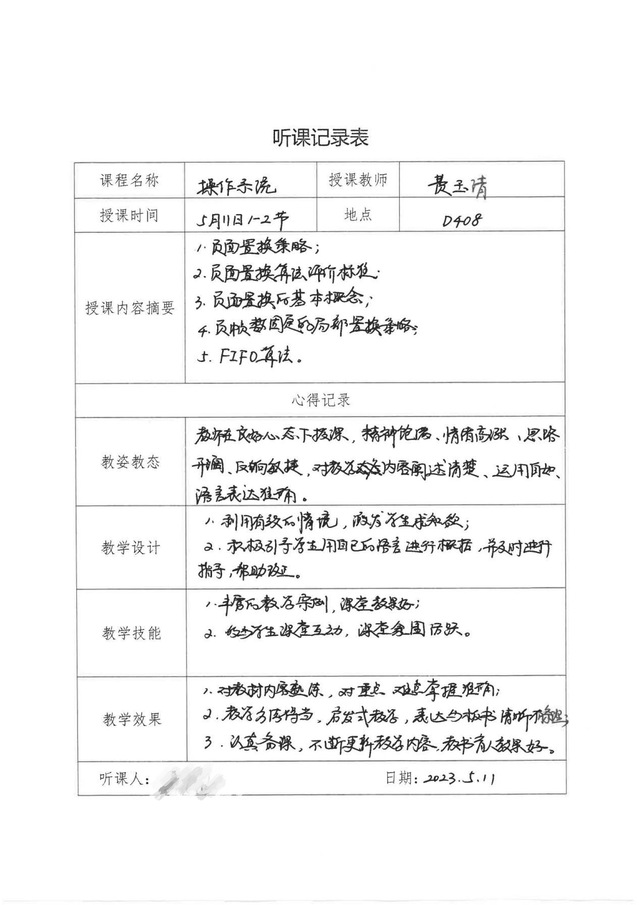 听课记录表
课程名称 操作系统 授课教师 费玉清
授课时间 5月11日1-2节 地点 D408
授课内容摘要
1. 页面置换策略；
2. 页面置换算法评价标准；
3. 页面置换的基本概念；
4. 页帧数固定的局部置换策略；
5. FIFO算法。
心得记录
教姿教态
教师在良好心态下授课，精神饱满、情绪高涨、思路
开阔、反响敏捷，对教学内容阐述清楚、运用自如、
语言表达准确。
教学设计
1. 利用有效的情境，激发学生求知欲；
2. 积极引导学生用自己的语言进行概括，并及时进行
指导，帮助改正。
教学技能
1. 丰富的教学案例，课堂效果好；
2. 学生课堂互动，课堂氛围活跃。
教学效果
1. 对教材内容熟练，对重点 难点掌握准确；
2. 教学方法得当，启发式教学，表达与板书清晰；
3. 认真备课，不断更新教学内容，教书育人效果好。
听课人： 日期：2023.5.11